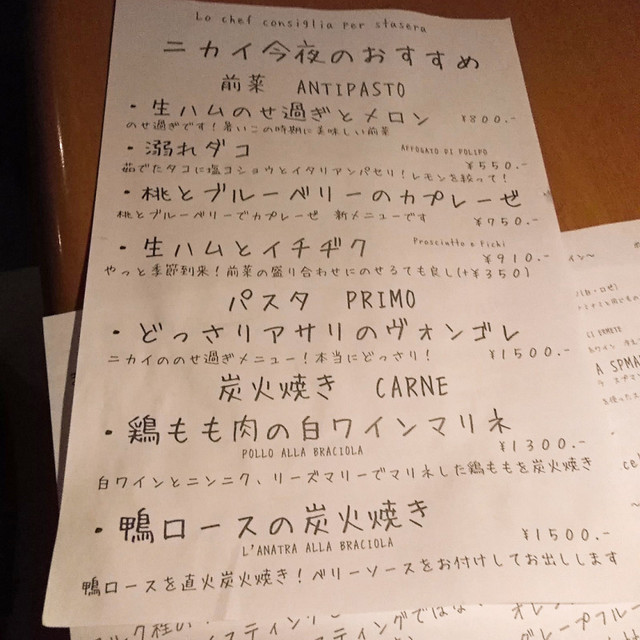 Lo chef consiglia per stasera
ニカイ今夜のおすすめ
前菜 ANTIPASTO
・生ハムのせ過ぎとメロン ¥800.-
のせ過ぎです！暑いこの時期に美味しい前菜
・溺れダコ AFFOGATO DI POLIPO
¥550.-
茹でたタコに塩コショウとイタリアンパセリ！レモンを絞って！
・桃とブルーベリーのカプレーゼ
桃とブルーベリーでカプレーゼ 新メニューです ¥750.-
・生ハムとイチヂク Prosciutto e Fichi
¥910.-
やっと季節到来！前菜の盛り合わせにのせるても良し(+¥350)
パスタ PRIMO
・どっさりアサリのヴォンゴレ
ニカイののせ過ぎメニュー！本当にどっさり！ ¥1500.-
炭火焼き CARNE
・鶏もも肉の白ワインマリネ
POLLO ALLA BRACIOLA ¥1300.-
白ワインとニンニク、リーズマリーでマリネした鶏ももを炭火焼き
・鴨ロースの炭火焼き
L'ANATRA ALLA BRACIOLA ¥1500.-
鴨ロースを直火炭火焼き！ベリーソースをお付けしてお出しします